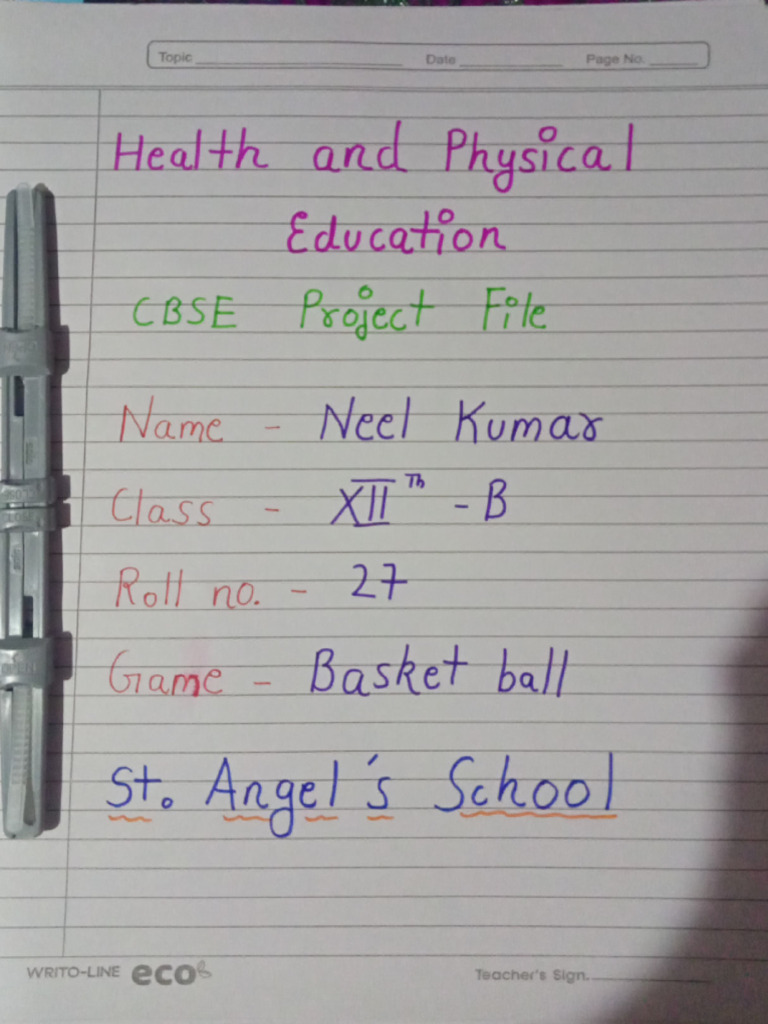 Topic Date Page No.
Health and Physical
Education
CBSE Project File
Name - Neel Kumar
Class - XII Th - B
Roll no. - 27
Game - Basket ball
St. Angel's School
WRITO-LINE eco Teacher's Sign.